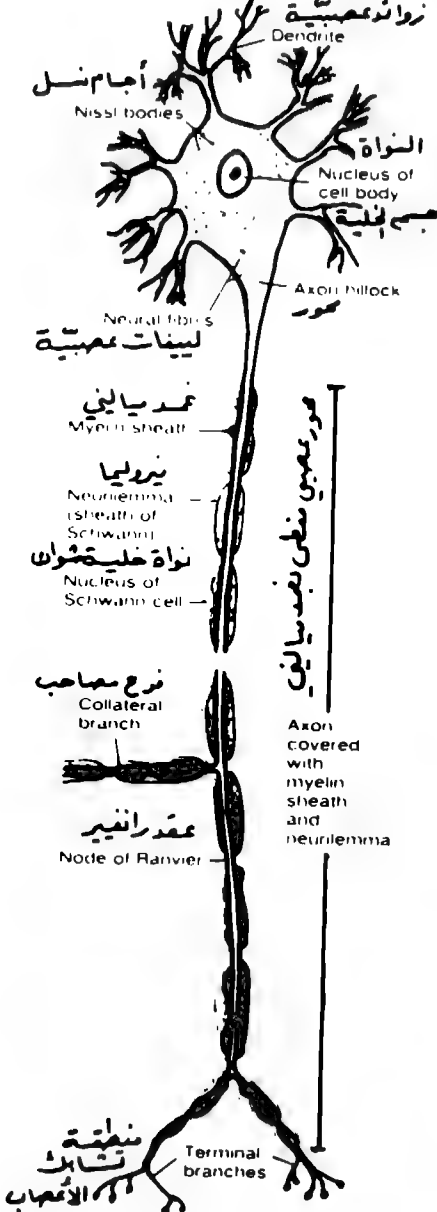 زوائد عصبيّة
Dendrite
أجسام نسل
Nissl bodies
النواة
Nucleus of
cell body
جسم الخلية
Axon hillock
محور
Neural fibrils
لييفات عصبيّة
غمد مياليني
Myelin sheath
نيروليما
Neurilemma
(sheath of
Schwann)
نواة خلية شوان
Nucleus of
Schwann cell
محور عصبي مغطى بغمد مياليني
فرع مصاحب
Collateral
branch
Axon
covered
with
myelin
sheath
and
neurilemma
عقد رانفيير
Node of Ranvier
منطقة
تشابك
الأعصاب
Terminal
branches